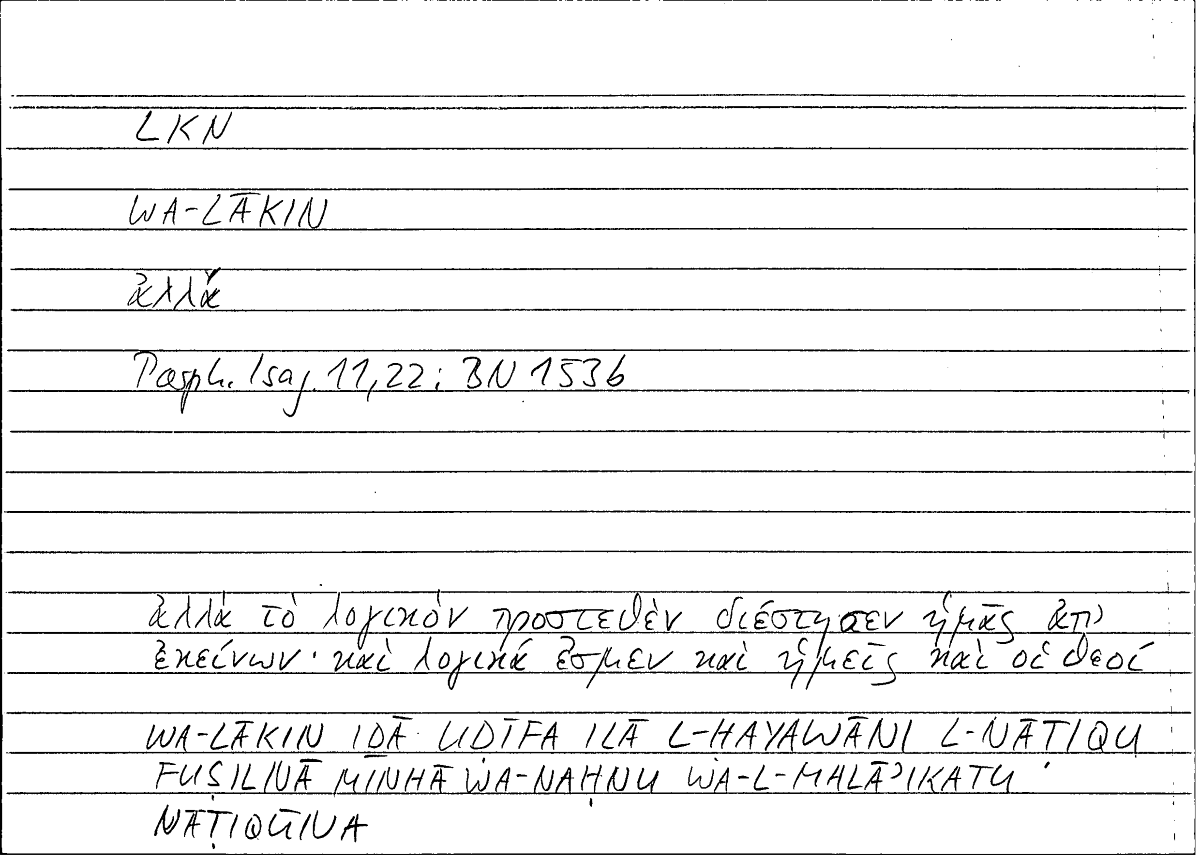 LKN
WA-LĀKIN
ἀλλά
Porph. Isag. 11,22: BN 153b
ἀλλὰ τὸ λογικὸν προστεθὲν διέστησεν ἡμᾶς ἀπ'
ἐκείνων· καὶ λογικά ἐσμεν καὶ ἡμεῖς καὶ οἱ θεοί
WA-LĀKIN IḎĀ UḌĪFA ILĀ L-ḤAYAWĀNI L-NĀṬIQU
FUṢILNĀ MINHĀ WA-NAḤNU WA-L-MALĀʾIKATU
NĀṬIQŪNA